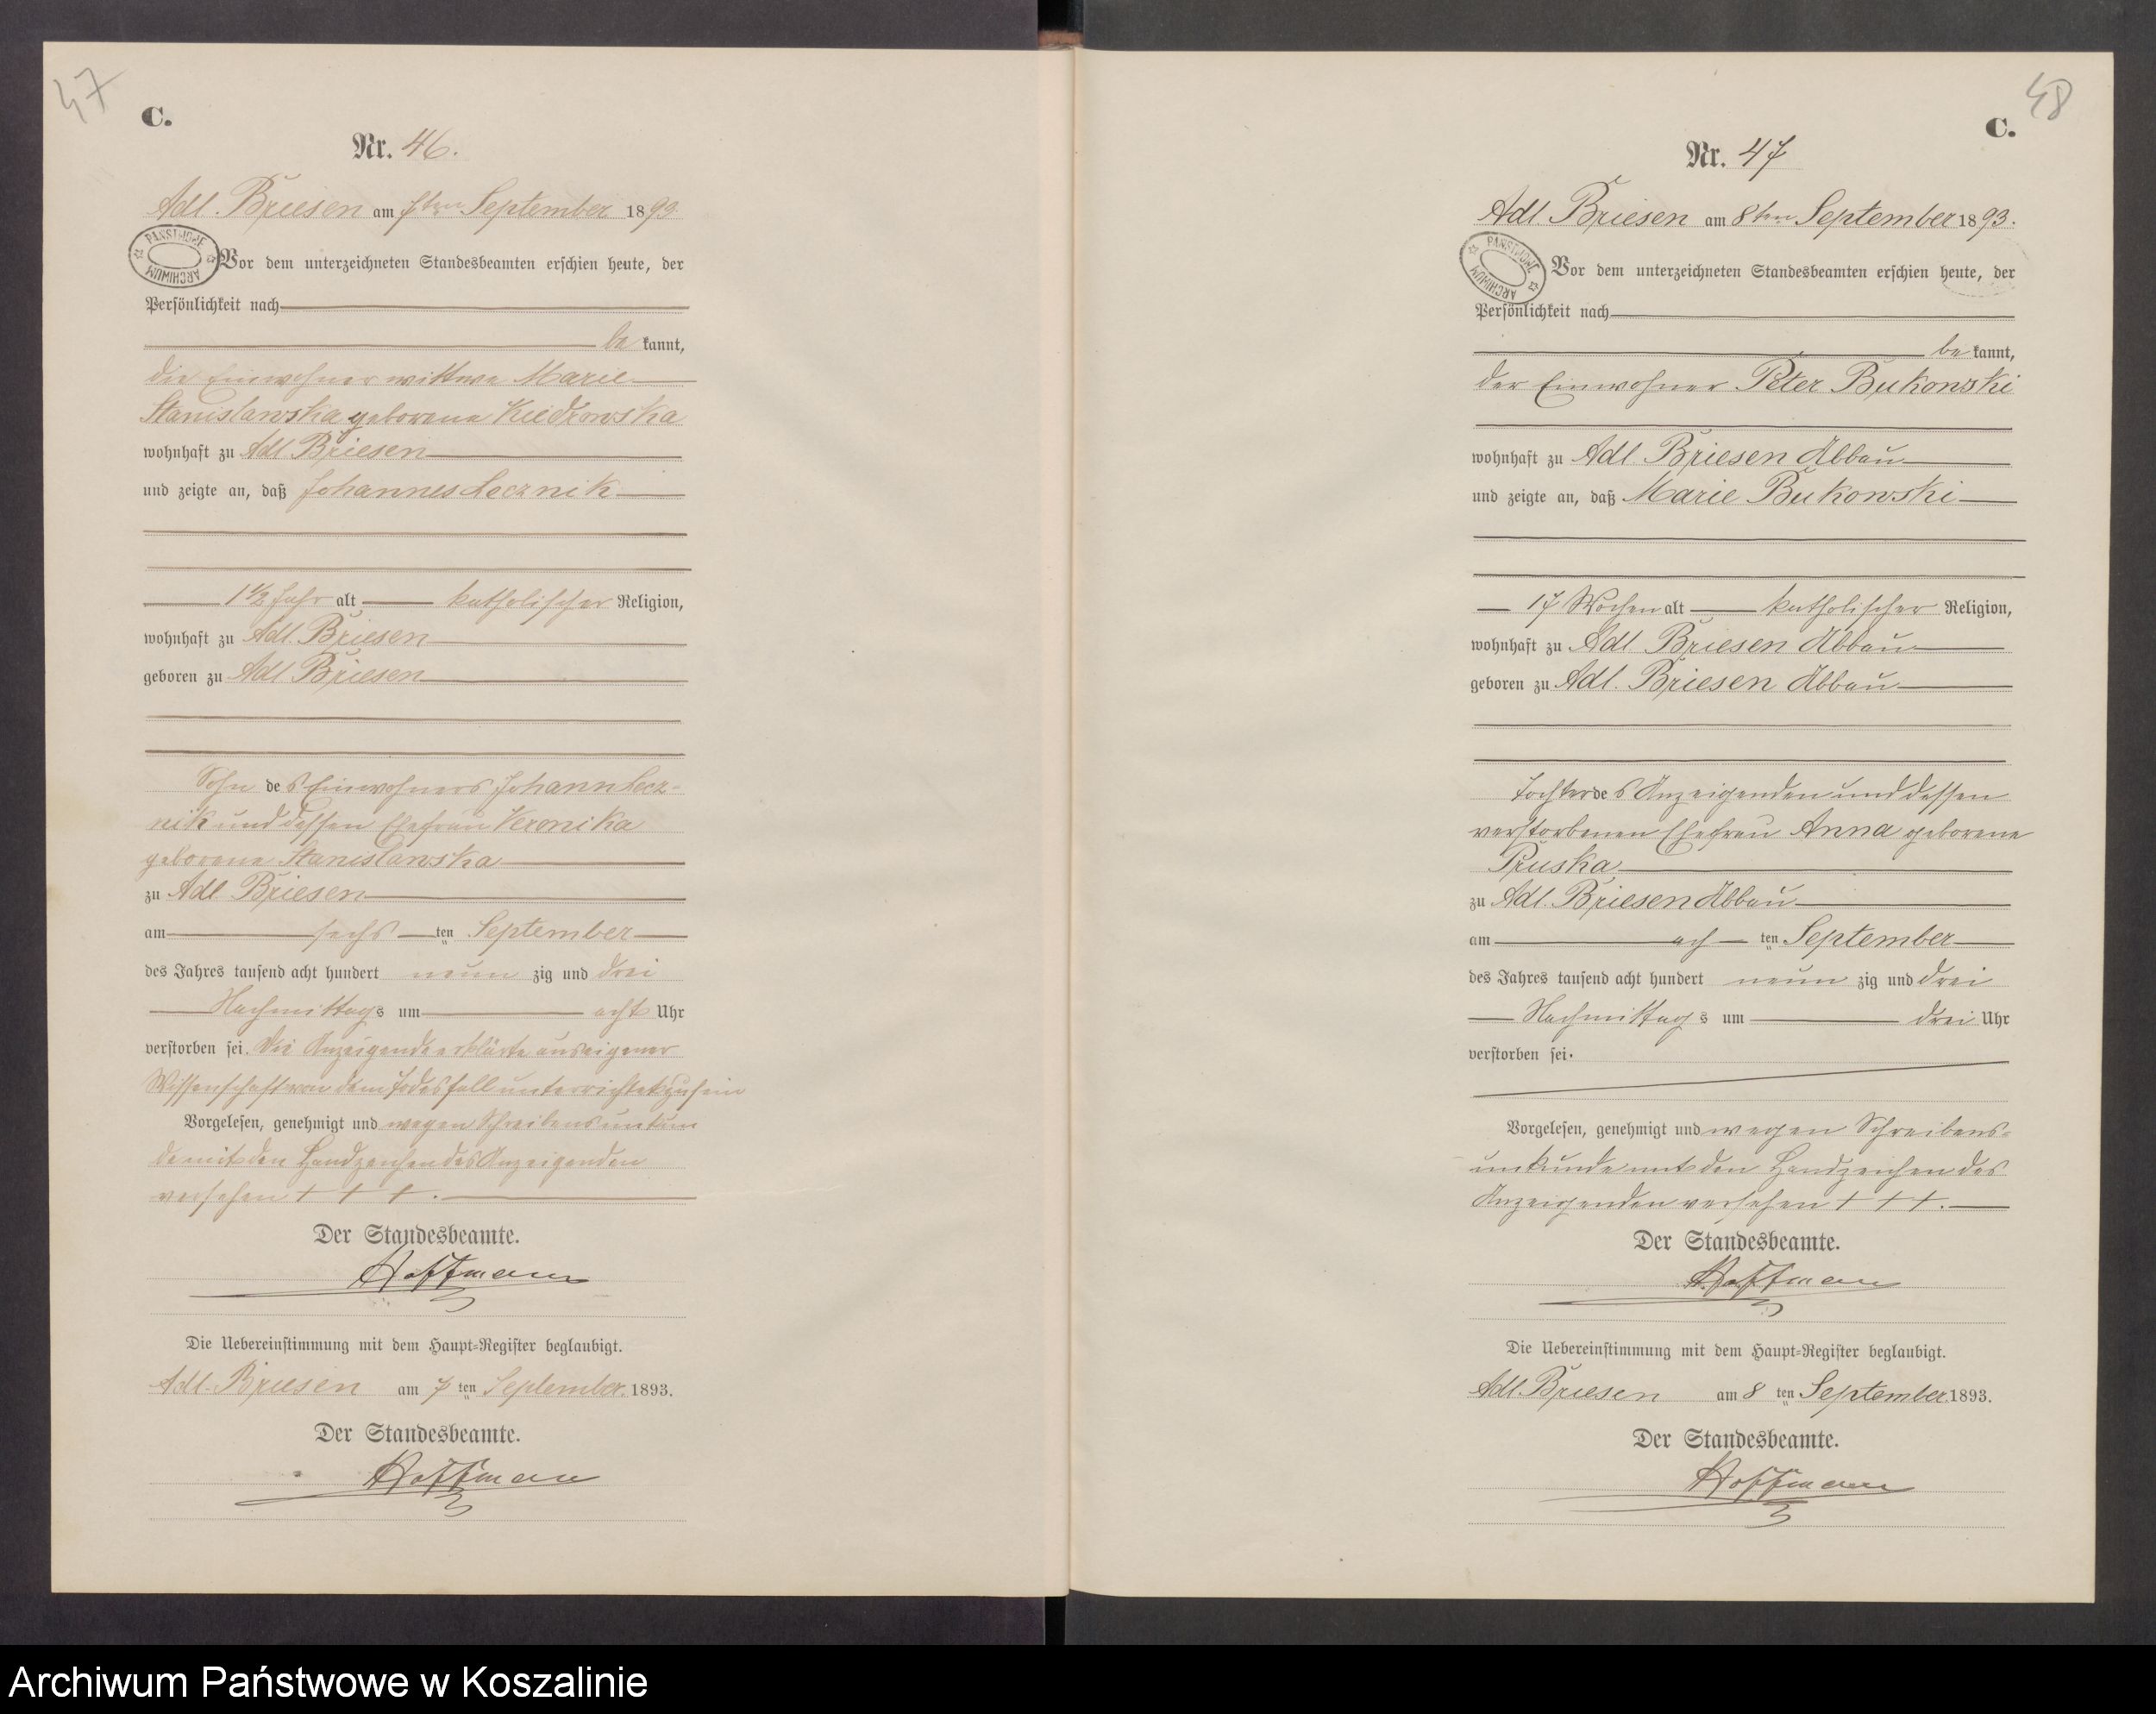 47
C.
Nr. 46.
Adl. Briesen am 7ten September 1893
PAŃSTWOWE ARCHIWUM
Vor dem unterzeichneten Standesbeamten erschien heute, der
Persönlichkeit nach
be kannt,
die Einwohnerwittwe Marie
Stanislawska geborene Kiedrowska
wohnhaft zu Adl. Briesen
und zeigte an, daß Johannes Lecznik
1 1/2 Jahr alt katholischer Religion,
wohnhaft zu Adl. Briesen
geboren zu Adl. Briesen
Sohn des Einwohners Johann Lecz-
nik und dessen Ehefrau Veronika
geborene Stanislawska
zu Adl. Briesen
am sechs ten September
des Jahres tausend acht hundert neun zig und drei
Nachmittags um acht Uhr
verstorben sei. Die Anzeigende erklärte aus eigener
Wissenschaft von dem Todesfall unterrichtet zu sein
Vorgelesen, genehmigt und wegen Schreibensunkun
de mit den Handzeichen des Anzeigenden
versehen + + +.
Der Standesbeamte.
Hoffmann
Die Uebereinstimmung mit dem Haupt-Register beglaubigt.
Adl. Briesen am 7 ten September 1893.
Der Standesbeamte.
Hoffmann
48
C.
Nr. 47
Adl. Briesen am 8ten September 1893.
PAŃSTWOWE ARCHIWUM
Vor dem unterzeichneten Standesbeamten erschien heute, der
Persönlichkeit nach
be kannt,
der Einwohner Peter Bukowski
wohnhaft zu Adl. Briesen Abbau
und zeigte an, daß Marie Bukowski
17 Wochen alt katholischer Religion,
wohnhaft zu Adl. Briesen Abbau
geboren zu Adl. Briesen Abbau
Tochter des Anzeigenden und dessen
verstorbenen Ehefrau Anna geborene
Pruska
zu Adl. Briesen Abbau
am ach ten September
des Jahres tausend acht hundert neun zig und drei
Nachmittags um drei Uhr
verstorben sei.
Vorgelesen, genehmigt und wegen Schreibens-
unkunde mit den Handzeichen des
Anzeigenden versehen + + +.
Der Standesbeamte.
Hoffmann
Die Uebereinstimmung mit dem Haupt-Register beglaubigt.
Adl. Briesen am 8 ten September 1893.
Der Standesbeamte.
Hoffmann
Archiwum Państwowe w Koszalinie